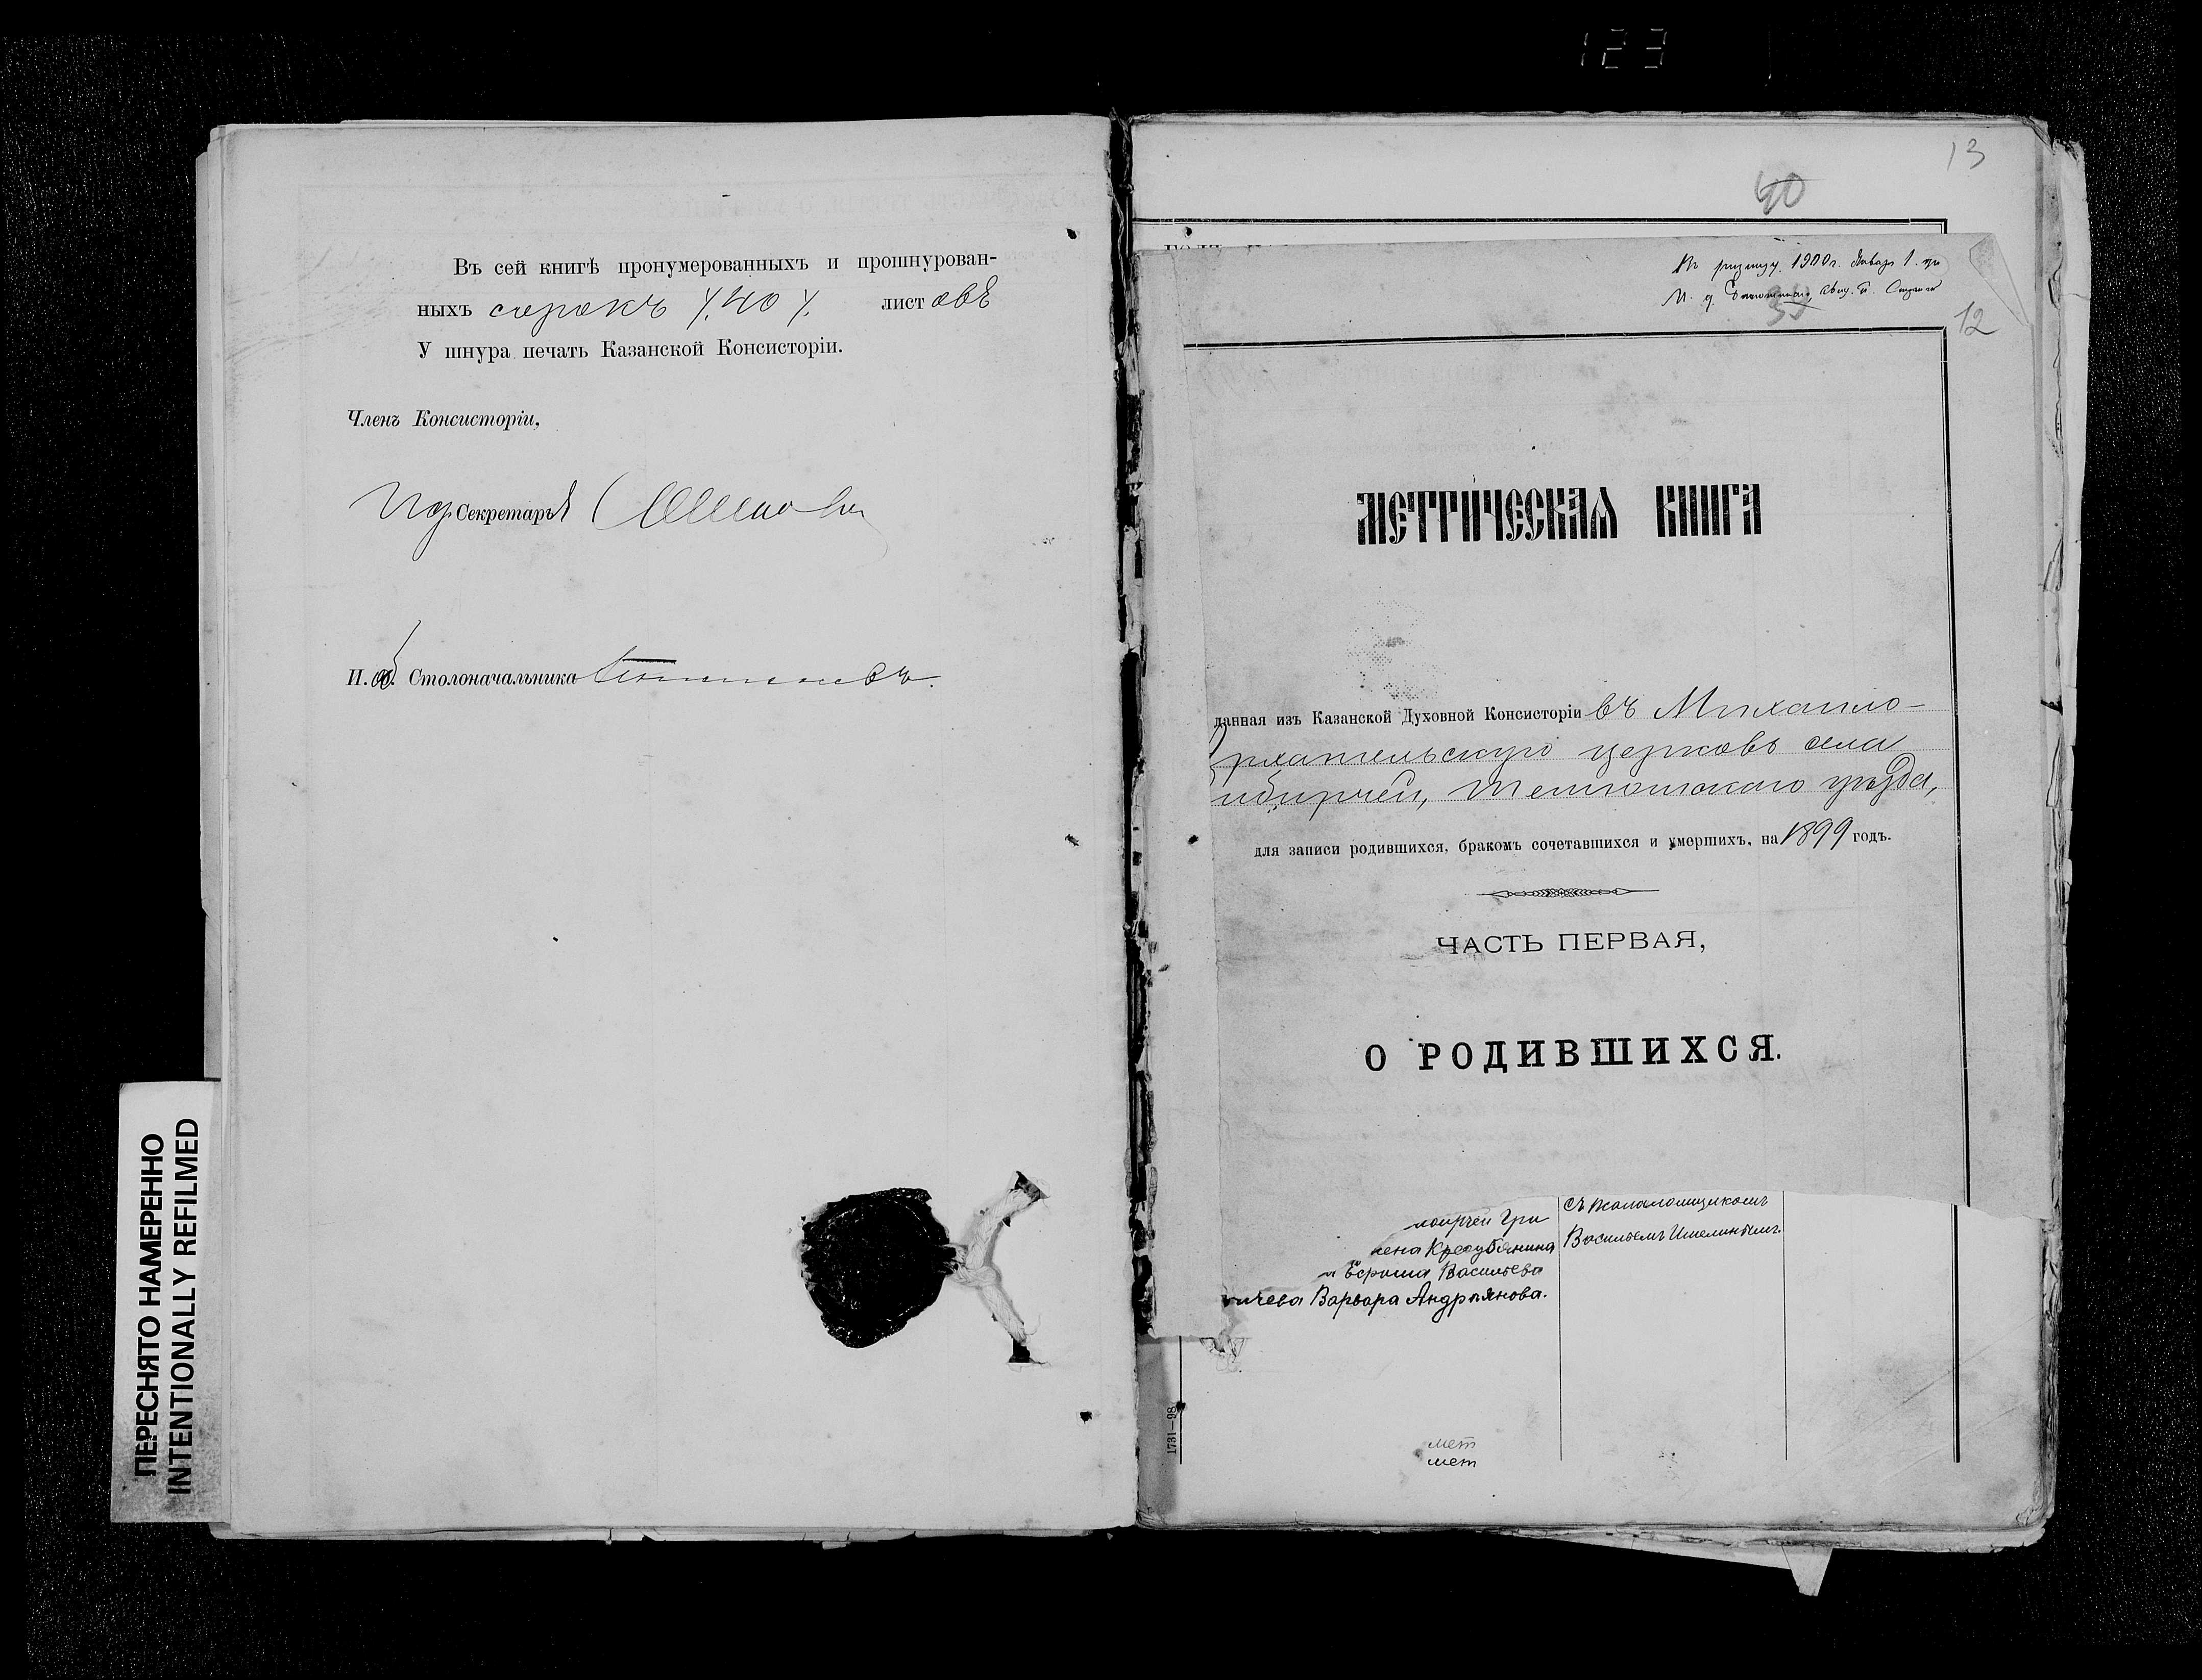 123
Въ сей книгѣ пронумерованныхъ и прошнурован-
ныхъ сорокъ /.40 /. листовъ
У шнура печать Казанской Консисторіи.
Членъ Консисторіи,
Секретарь
И. об. Столоначальника
ПЕРЕСНЯТО НАМЕРЕННО
INTENTIONALLY REFILMED
13
40
1900 г. Января 1.
12
МЕТРИЧЕСКАЯ КНИГА
данная изъ Казанской Духовной Консисторіи въ Михаило-
рхангельскую церковь села
Тетюшскаго уѣзда,
для записи родившихся, бракомъ сочетавшихся и умершихъ, на 1899 годъ.
ЧАСТЬ ПЕРВАЯ,
О РОДИВШИХСЯ.
съ псаломщикомъ
Гри
Васильемъ
Васильева
Варвара Андріянова.
1731—98
мет
мет